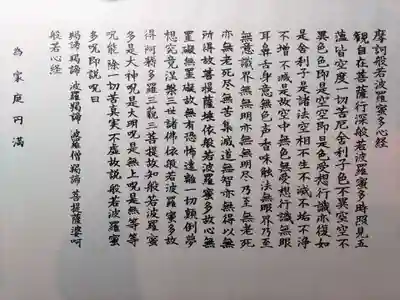 摩訶般若波羅蜜多心経
観自在菩薩行深般若波羅蜜多時照見五
蘊皆空度一切苦厄舎利子色不異空空不
異色色即是空空即是色受想行識亦復如
是舎利子是諸法空相不生不滅不垢不浄
不増不減是故空中無色無受想行識無眼
耳鼻舌身意無色声香味触法無眼界乃至
無意識界無無明亦無無明尽乃至無老死
亦無老死尽無苦集滅道無智亦無得以無
所得故菩提薩埵依般若波羅蜜多故心無
罣礙無罣礙故無有恐怖遠離一切顛倒夢
想究竟涅槃三世諸仏依般若波羅蜜多故
得阿耨多羅三藐三菩提故知般若波羅蜜
多是大神呪是大明呪是無上呪是無等等
呪能除一切苦真実不虚故説般若波羅蜜
多呪即説呪曰
羯諦 羯諦 波羅羯諦 波羅僧羯諦 菩提薩婆呵
般若心経
為 家庭円満